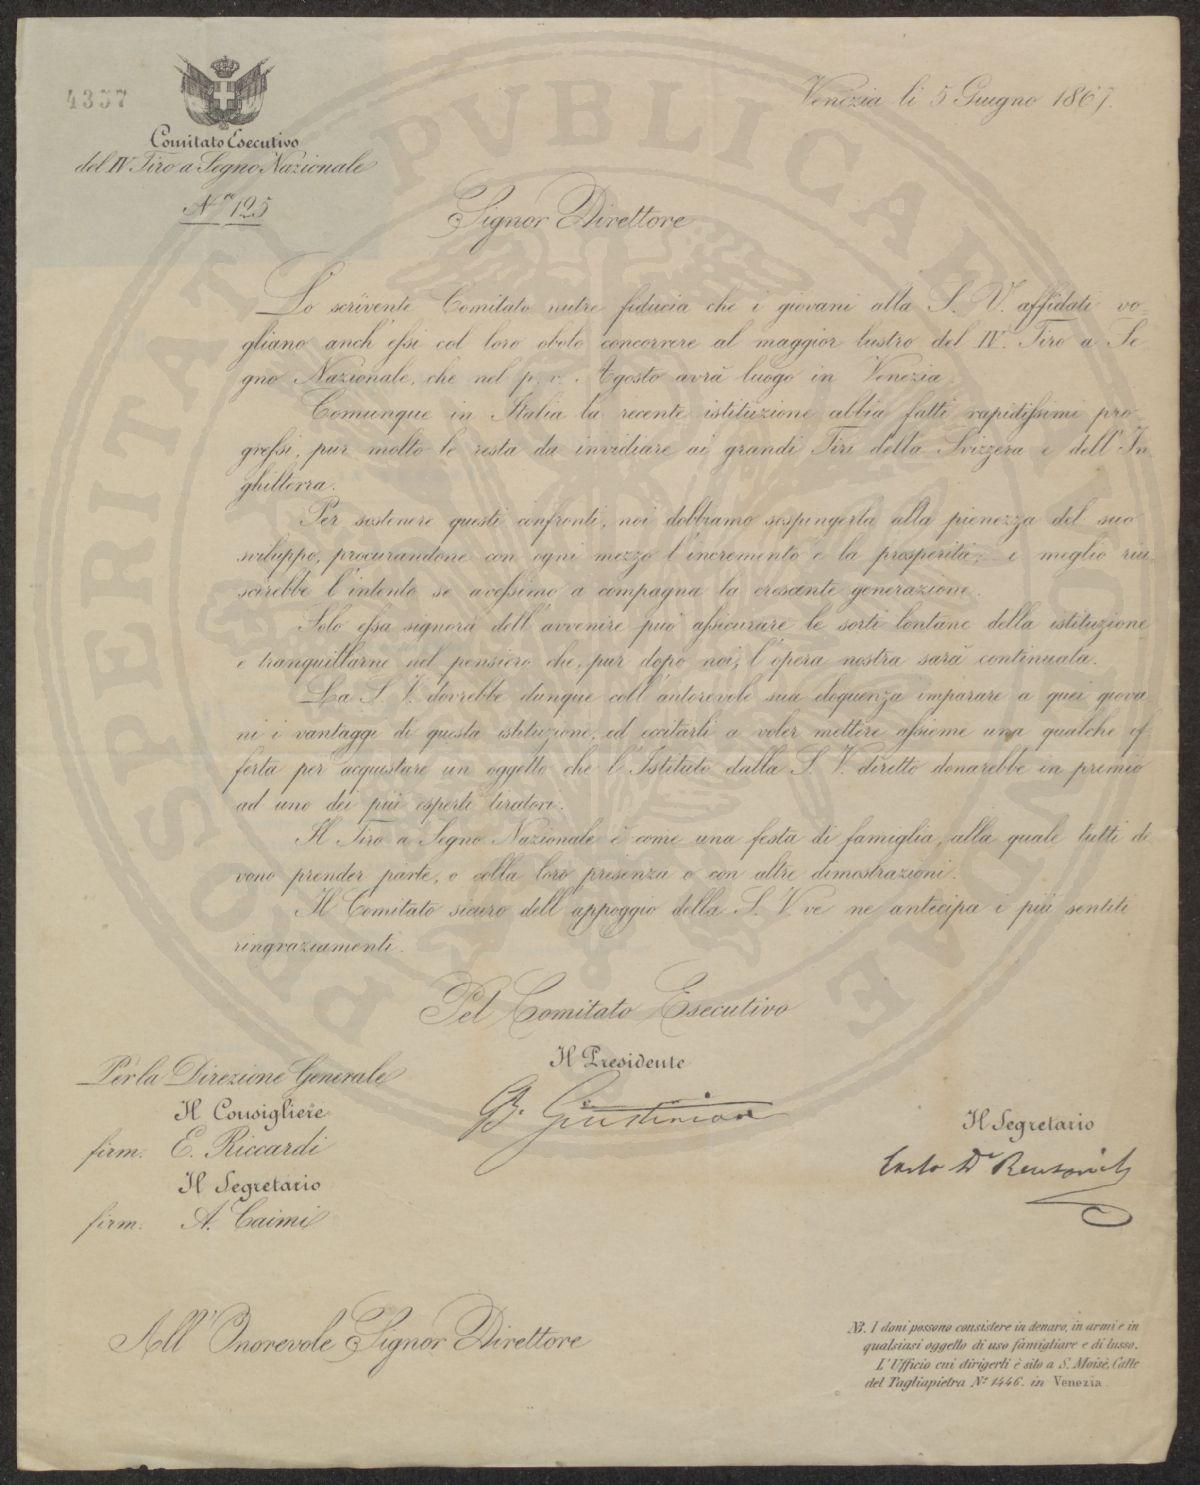 4357
Comitato Esecutivo
del IV Tiro a Segno Nazionale
N.ro 125
Venezia li 5 Giugno 1867.
Signor Direttore
Lo scrivente Comitato nutre fiducia che i giovani alla S. V. affidati vo-
gliano anch'essi col loro obolo concorrere al maggior lustro del IV. Tiro a Se-
gno Nazionale, che nel p. v. Agosto avrà luogo in Venezia.
Comunque in Italia la recente istituzione abbia fatti rapidissimi pro-
gressi, pur molto le resta da invidiare ai grandi Tiri della Svizzera e dell'In-
ghilterra.
Per sostenere questi confronti, noi dobbiamo sospingerla alla pienezza del suo
sviluppo, procurandone con ogni mezzo l'incremento e la prosperità; e meglio riu-
scirebbe l'intento se avessimo a compagna la crescente generazione.
Solo essa signora dell'avvenire può assicurare le sorti lontane della istituzione
e tranquillarne nel pensiero che, pur dopo noi, l'opera nostra sarà continuata.
La S. V. dovrebbe dunque coll'autorevole sua eloquenza imparare a quei giova-
ni i vantaggi di questa istituzione, ed eccitarli a voler mettere assieme una qualche of-
ferta per acquistare un oggetto che l'Istituto dalla S. V. diretto donarebbe in premio
ad uno dei più esperti tiratori.
Il Tiro a Segno Nazionale è come una festa di famiglia, alla quale tutti de-
vono prender parte, o colla loro presenza o con altre dimostrazioni.
Il Comitato sicuro dell'appoggio della S. V. ve ne antecipa i più sentiti
ringraziamenti.
Pel Comitato Esecutivo
Il Presidente
GB. Giustinian
Per la Direzione Generale
Il Consigliere
firm. E. Riccardi
Il Segretario
firm. A. Caimi
Il Segretario
Carlo Dr
All'Onorevole Signor Direttore
NB. I doni possono consistere in denaro, in armi e in
qualsiasi oggetto di uso famigliare e di lusso.
L'Ufficio cui dirigerli è sito a S. Moisè, Calle
del Tagliapietra N.º 1446. in Venezia.
PROSPERITATI PVBLICAE